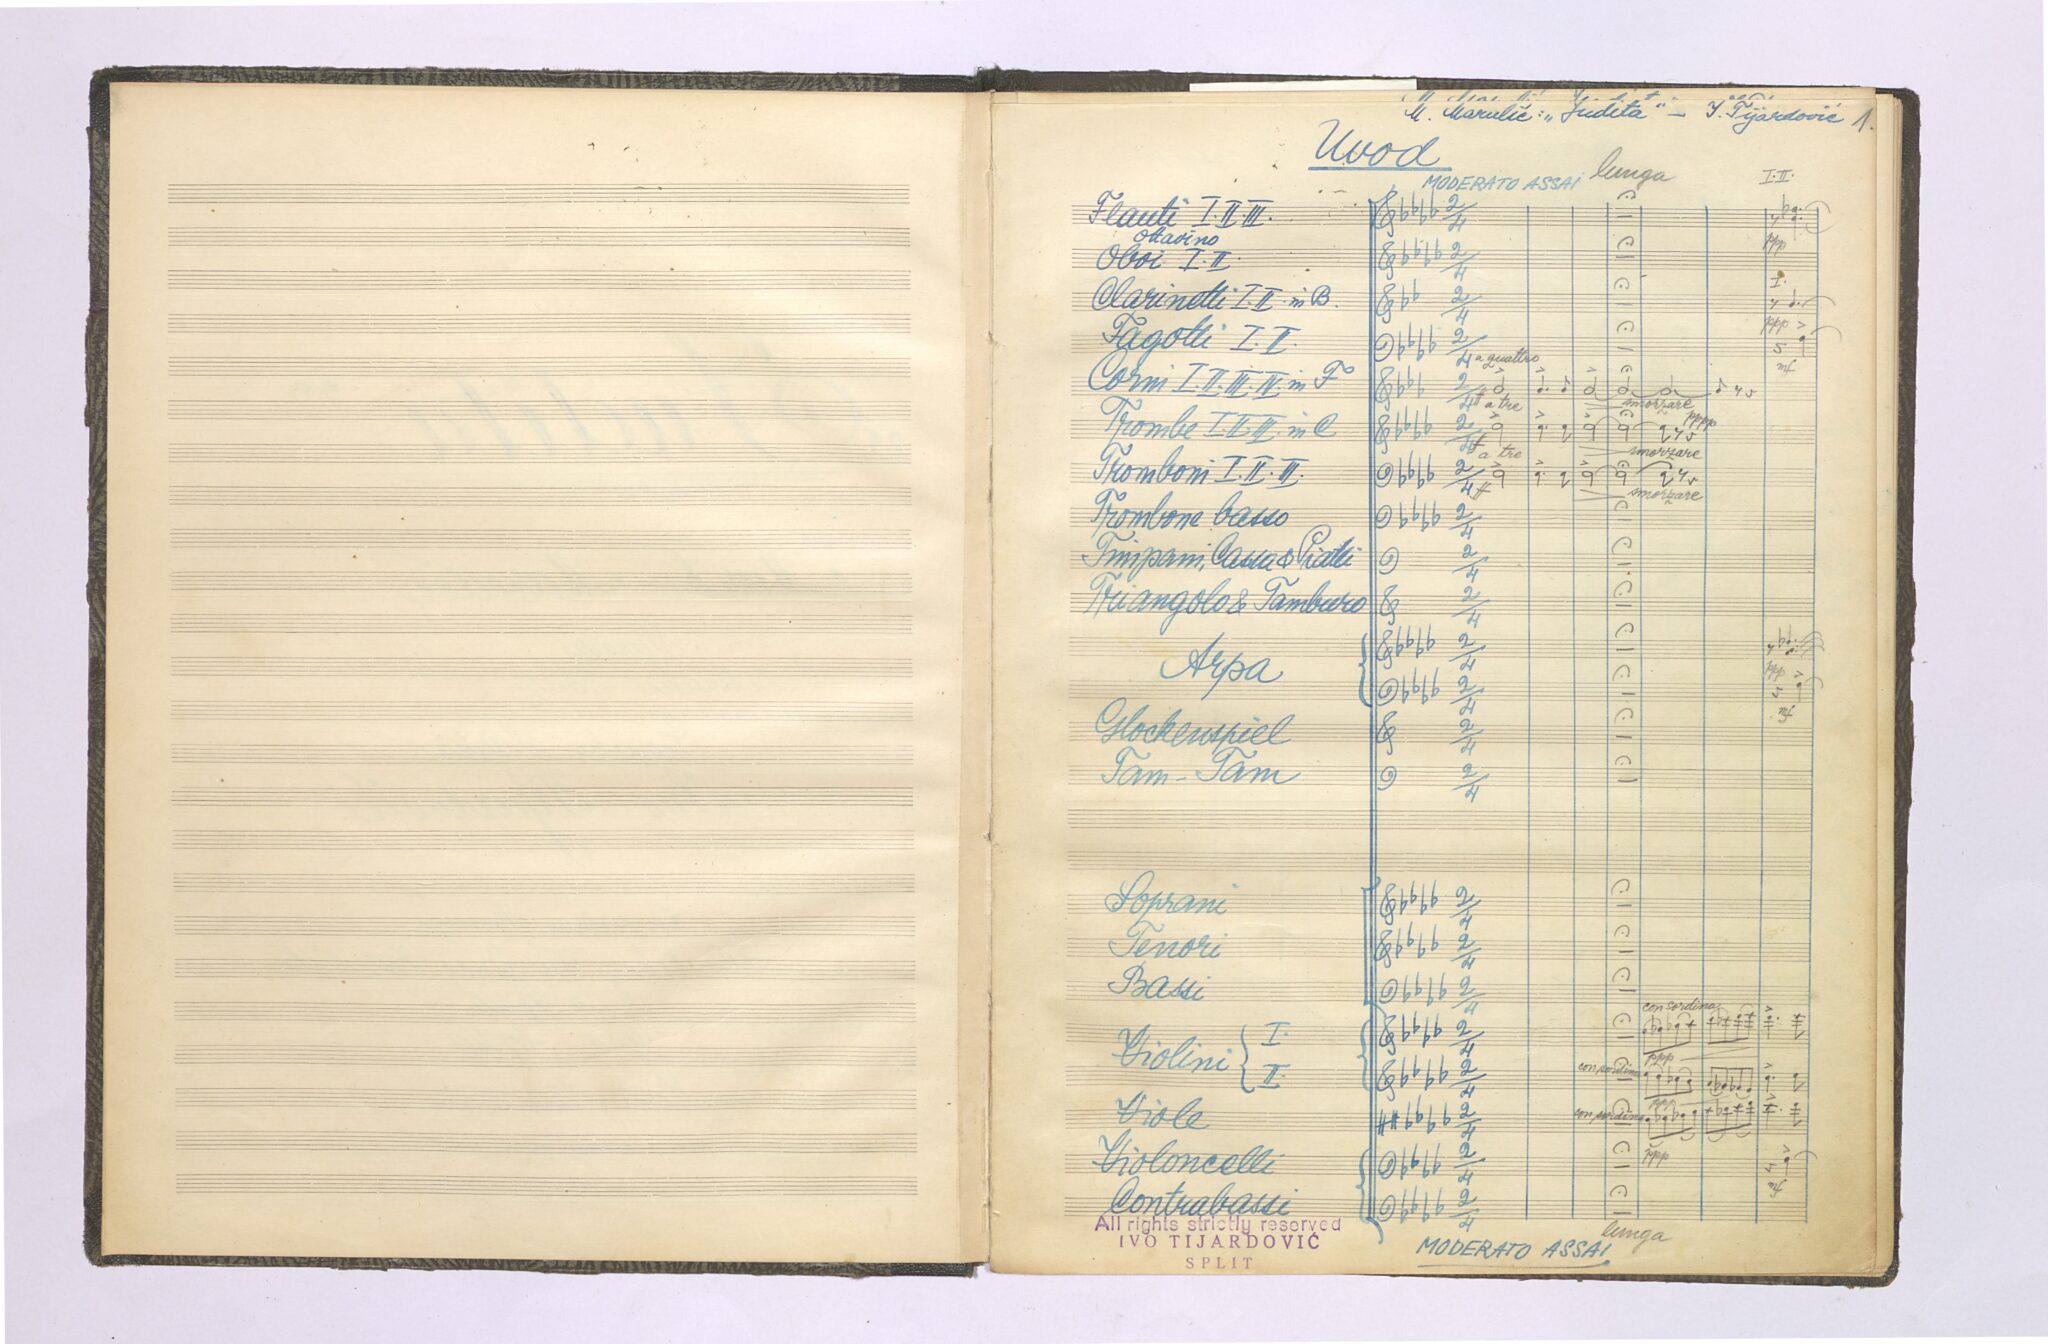 M. Marulić: „Judita" – I. Tijardović 1.
Uvod
MODERATO ASSAI lunga I. II.
Flauti I. II. III.
Ottavino
ppp
Oboi I. II.
I.
Clarinetti I. II. in B.
ppp
Fagotti I. II.
a quattro
Corni I. II. III. IV. in F
ff a tre smorzare
pppp
Trombe I. II. III. in C
ff a tre smorzare
Tromboni I. II. III.
ff smorzare
Trombone basso
Timpani, Cassa & Piatti
Triangolo & Tamburo
Arpa
ppp
Glockenspiel
Tam-Tam
Soprani
Tenori
Bassi
con sordina
Violini I.
ppp
con sordina
II.
ppp
con sordina
Viole
ppp
Violoncelli
Contrabassi
All rights strictly reserved
IVO TIJARDOVIĆ
SPLIT
lunga
MODERATO ASSAI